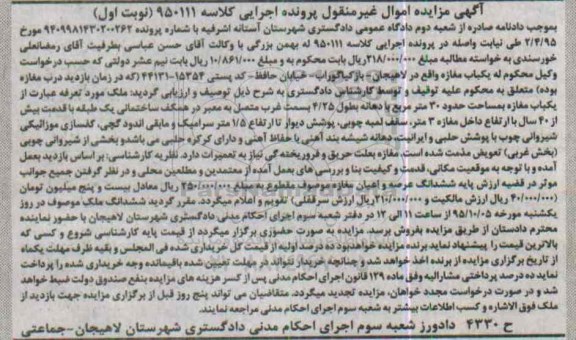 آگهی مزایده اموال غیرمنقول پرونده اجرایی کلاسه ۹۵۰۱۱۱ (نوبت اول)
بموجب دادنامه صادره از شعبه دوم دادگاه عمومی دادگستری شهرستان آستانه اشرفیه با شماره پرونده ۹۴۰۹۹۸۱۴۳۰۲۰۰۲۶۲ مورخ
۲/۴/۹۵ طی نیابت واصله در پرونده اجرایی کلاسه ۹۵۰۱۱۱ له بهمن بزرگی با وکالت آقای حسن عباسی بطرفیت آقای رمضانعلی
خورسندی به خواسته مطالبه مبلغ ۲۱۸/۰۰۰/۰۰۰ ریال بابت محکوم به و مبلغ ۱۰/۸۶۱/۰۰۰ ریال بابت نیم عشر دولتی که حسب درخواست
وکیل محکوم له یکباب مغازه واقع در لاهیجان - بازکیاگوراب - خیابان حافظ- کد پستی ۱۵۳۵۴-۴۴۱۳۱ (که در زمان بازدید درب مغازه
بوده) متعلق به محکوم علیه توقیف و توسط کارشناس دادگستری به شرح ذیل توصیف و ارزیابی گردید: ملک مورد تعرفه عبارت از
یکباب مغازه بمساحت حدود ۳۰ متر مربع با دهانه بطول ۴/۲۵ بسمت غرب متصل به معبر در همکف ساختمانی یک طبقه با قدمت بیش
از ۴۰ سال با ارتفاع داخل مغازه ۳ متر، سقف لمبه چوبی، پوشش دیوار تا ارتفاع ۱/۵ متر سرامیک و مابقی اندود گچی، کفسازی موزائیکی
شیروانی چوب با پوشش حلبی و ایرانیت دهانه شیشه بند آهنی با حفاظ آهنی و دارای کرکره حلبی می باشد و بخشی از شیروانی چوبی
(بخش غربی) تعویض مذمت شده است. مغازه بعلت حریق و فروریخته گی نیاز به تعمیرات دارد. نظریه کارشناسی: بر اساس بازدید بعمل
آمده و با توجه به موقعیت مکانی، قدمت و کیفیت بنا و بررسی های بعمل آمده از معتمدین و مطلعین محلی و در نظر گرفتن جمیع جوانب
موثر در قضیه ارزش پایه ششدانگ عرصه و اعیان مغازه موصوف مقطوع به مبلغ ۲۵۰/۰۰۰/۰۰۰ ریال معادل بیست و پنج میلیون تومان
(۴۰/۰۰۰/۰۰۰ ریال ارزش مالکیت و ۲۱۰/۰۰۰/۰۰۰ ریال ارزش سرقفلی) تقویم و اعلام میگردد. مقرر گردید ششدانگ ملک موصوف در روز
یکشنبه مورخه ۹۵/۱۰/۰۵ از ساعت ۱۱ الی ۱۲ در دفتر شعبه سوم اجرای احکام مدنی دادگستری شهرستان لاهیجان با حضور نماینده
محترم دادستان از طریق مزایده بفروش برسد. مزایده به صورت حضوری برگزار میگردد از قیمت پایه کارشناسی شروع و کسی که
بالاترین قیمت را پیشنهاد نماید برنده مزایده خواهد بود ده درصد اولیه از قیمت کل خریداری شده فی المجلس و بقیه ظرف مهلت یکماه
از تاریخ برگزاری مزایده از برنده اخذ خواهد شد و چنانچه خریدار نتواند در مهلت تعیین شده باقیمانده وجه خریداری شده را پرداخت
نماید ده درصد پرداختی مشارالیه وفق ماده ۱۲۹ قانون اجرای احکام مدنی پس از کسر هزینه های مزایده بنفع صندوق دولت ضبط خواهد
شد و در صورت درخواست مجدد خواهان، مزایده تجدید میگردد. متقاضیان می تواند پنج روز قبل از برگزاری مزایده جهت بازدید از
ملک فوق الاشاره و کسب اطلاعات بیشتر به شعبه سوم اجرای احکام مدنی مراجعه نمایند.
ح ۴۳۳۰ دادورز شعبه سوم اجرای احکام مدنی دادگستری شهرستان لاهیجان-جماعتی